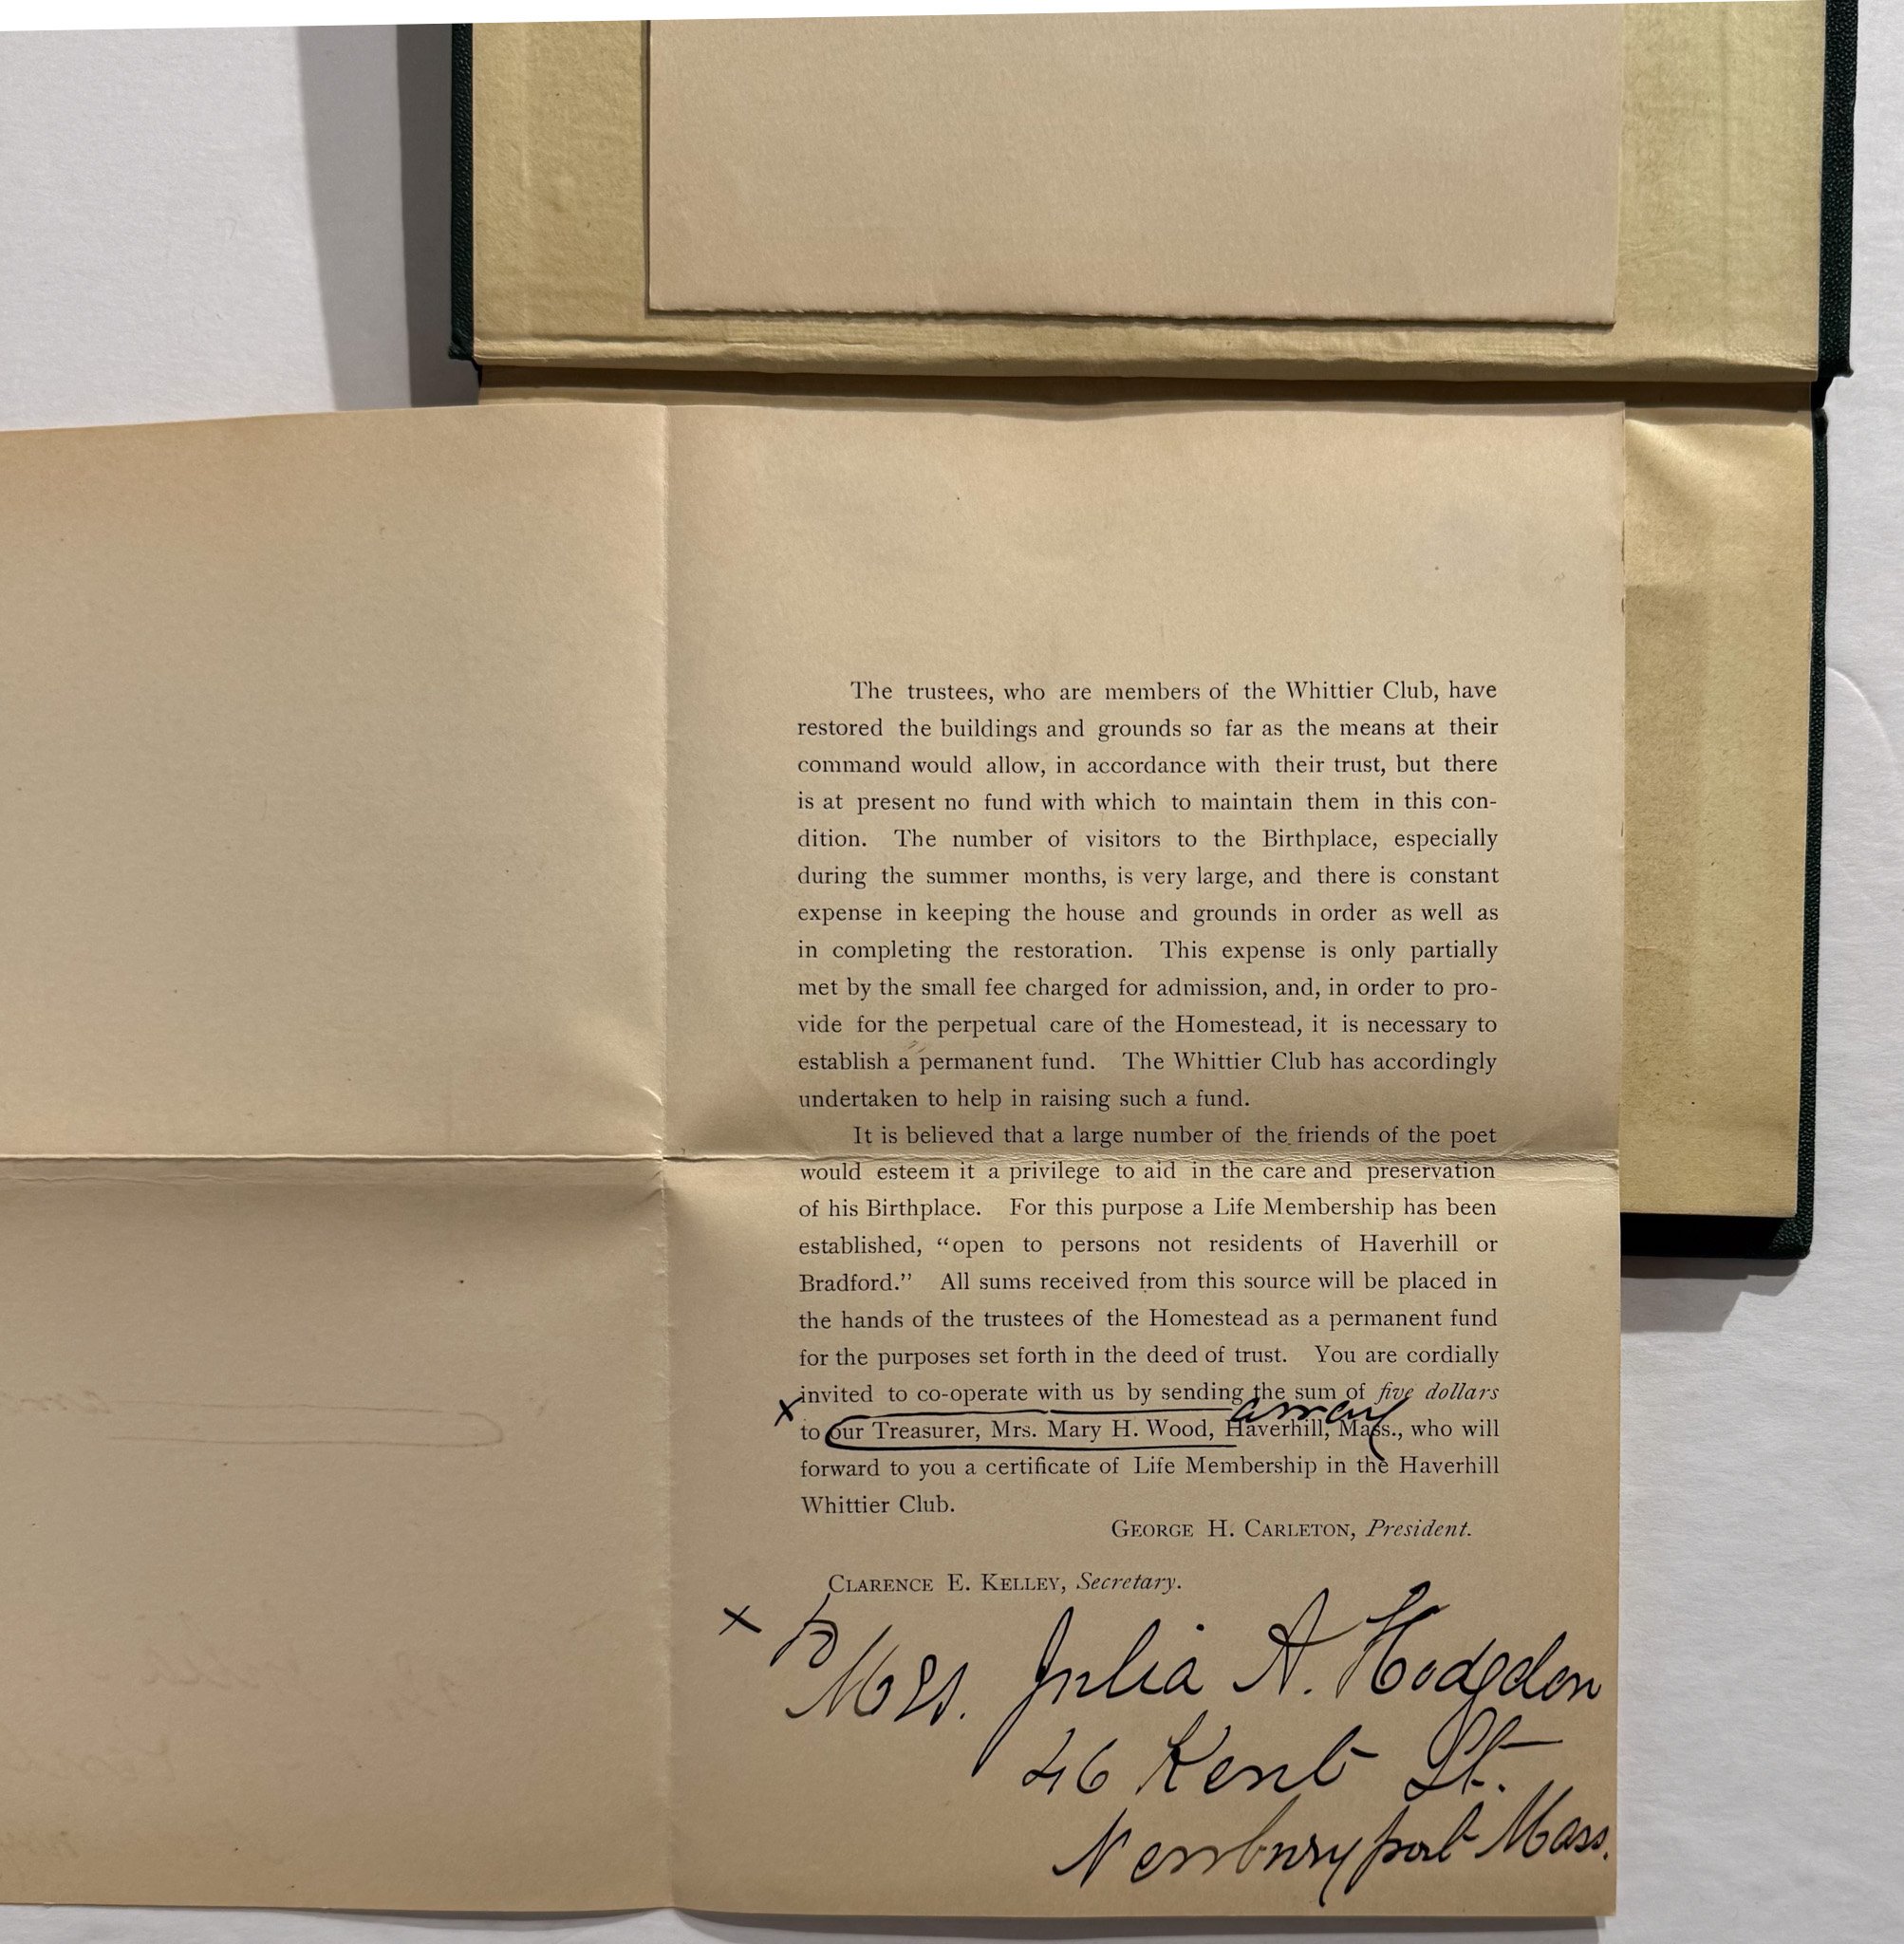 The trustees, who are members of the Whittier Club, have
restored the buildings and grounds so far as the means at their
command would allow, in accordance with their trust, but there
is at present no fund with which to maintain them in this con-
dition. The number of visitors to the Birthplace, especially
during the summer months, is very large, and there is constant
expense in keeping the house and grounds in order as well as
in completing the restoration. This expense is only partially
met by the small fee charged for admission, and, in order to pro-
vide for the perpetual care of the Homestead, it is necessary to
establish a permanent fund. The Whittier Club has accordingly
undertaken to help in raising such a fund.
It is believed that a large number of the friends of the poet
would esteem it a privilege to aid in the care and preservation
of his Birthplace. For this purpose a Life Membership has been
established, “open to persons not residents of Haverhill or
Bradford.” All sums received from this source will be placed in
the hands of the trustees of the Homestead as a permanent fund
for the purposes set forth in the deed of trust. You are cordially
invited to co-operate with us by sending the sum of five dollars
x
to our Treasurer, Mrs. Mary H. Wood, Haverhill, Mass., who will
forward to you a certificate of Life Membership in the Haverhill
Whittier Club.
GEORGE H. CARLETON, President.
CLARENCE E. KELLEY, Secretary.
x To
Mrs. Julia A. Hodgdon
46 Kent St.
Newburyport Mass.